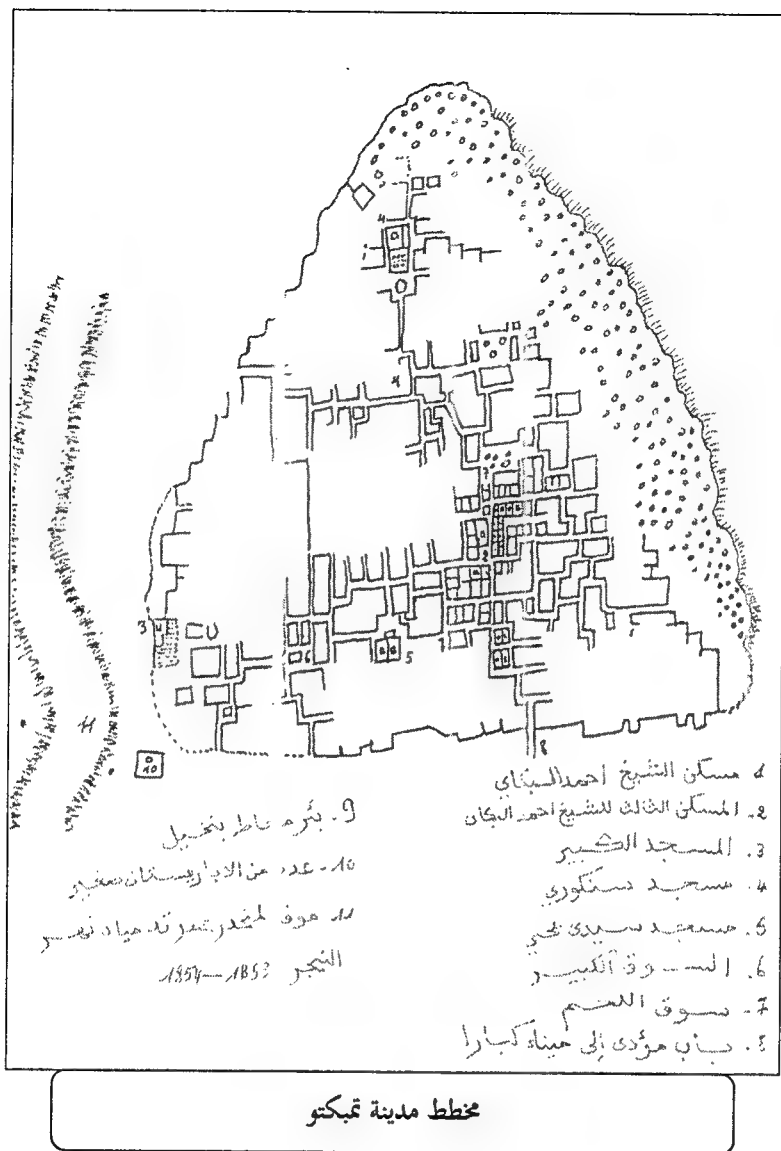 4
4
3
6
5
7
2
8
11
10
1 مسكن الشيخ احمد البكاي
2. المسكن الثالث للشيخ احمد البكاي
3. المسجد الكبير
4. مسجد سنكوري
5. مسجد سيدي يحي
6. السوق الكبير
7- سوق اللحم
8. باب مؤدى إلى ميناء كبارا
9- بئر محاط بنخيل
10- عدد من الابار بستان صغير
11
النيجر 1853-1854
مخطط مدينة تمبكتو